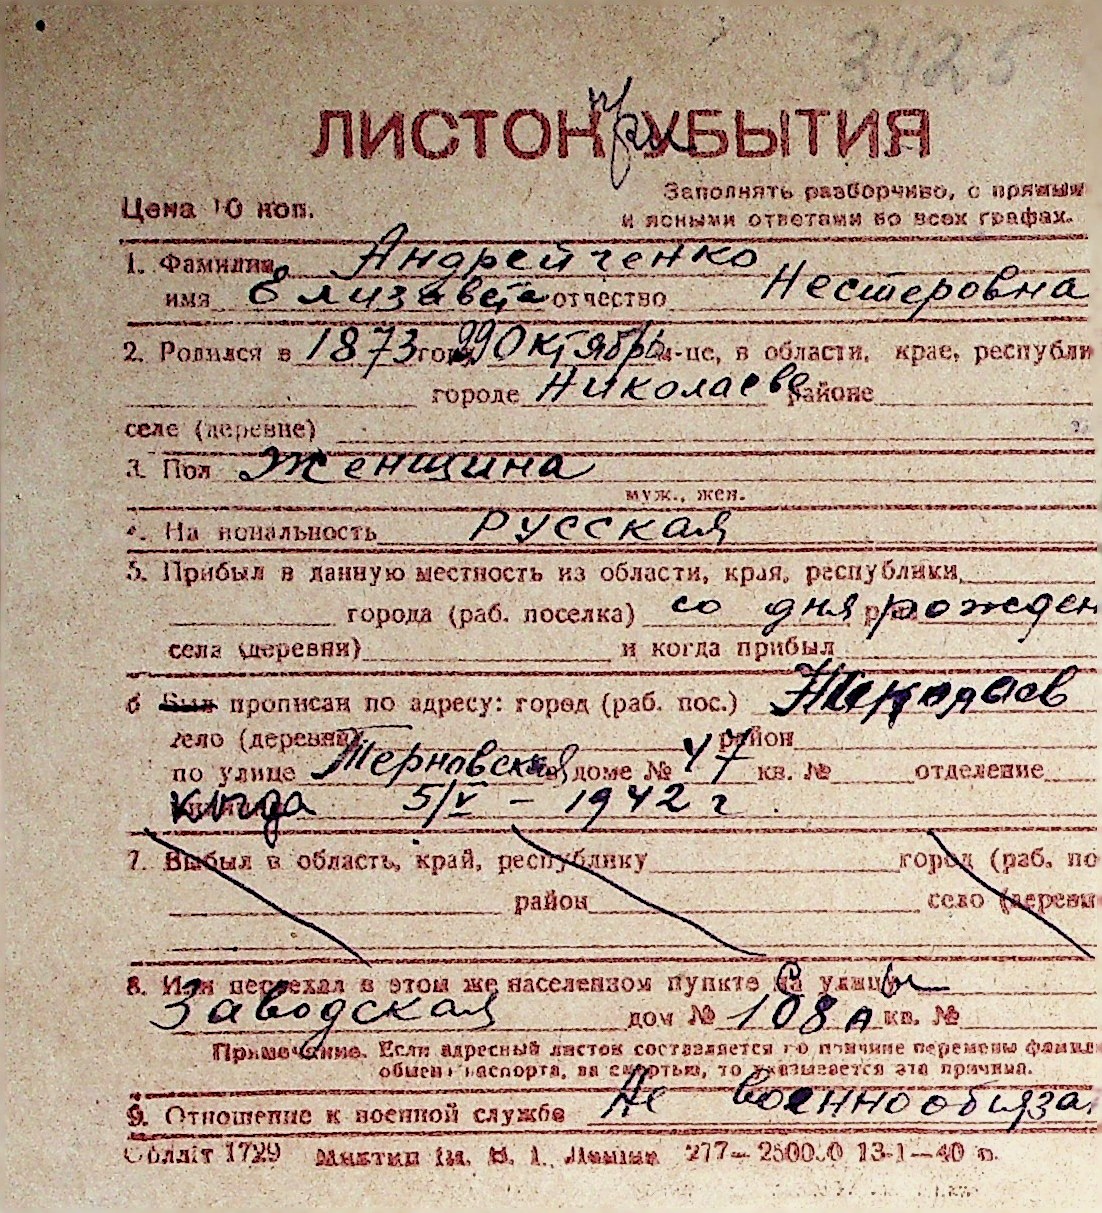 3425
ЛИСТОК при УБЫТИЯ
Цена 10 коп.
Заполнять разборчиво, с прямым
и ясными ответами во всех графах.
1. Фамилия Андрейченко
имя Елизавета отчество Нестеровна
2. Родился в 1873 году 29 Октябрь м-це, в области, крае, республи
городе Николаеве районе
селе (деревне)
3. Пол Женщина
муж., жен.
4. На иональность Русская
5. Прибыл в данную местность из области, края, республики,
города (раб. поселка) со дня рожден
села (деревни) и когда прибыл
6 Был прописан по адресу: город (раб. пос.) Николаев
село (деревня) район
по улице Терновская доме № 47 кв. № отделение
когда 5/V – 1942 г
7. Выбыл в область, край, республику город (раб. по
район село (деревы
8. Или переехал в этом же населенном пункте с улицы
Заводская дом № 108 А кв. №
Примечание. Если адресный листок составляется по причине перемены фамил
обмен паспорта, за смертью, то указывается эта причина.
9. Отношение к военной службе Не военнообяза
Облліт 1729 Миктип ім. В. І. Леніна 277— 13-1—40 п.